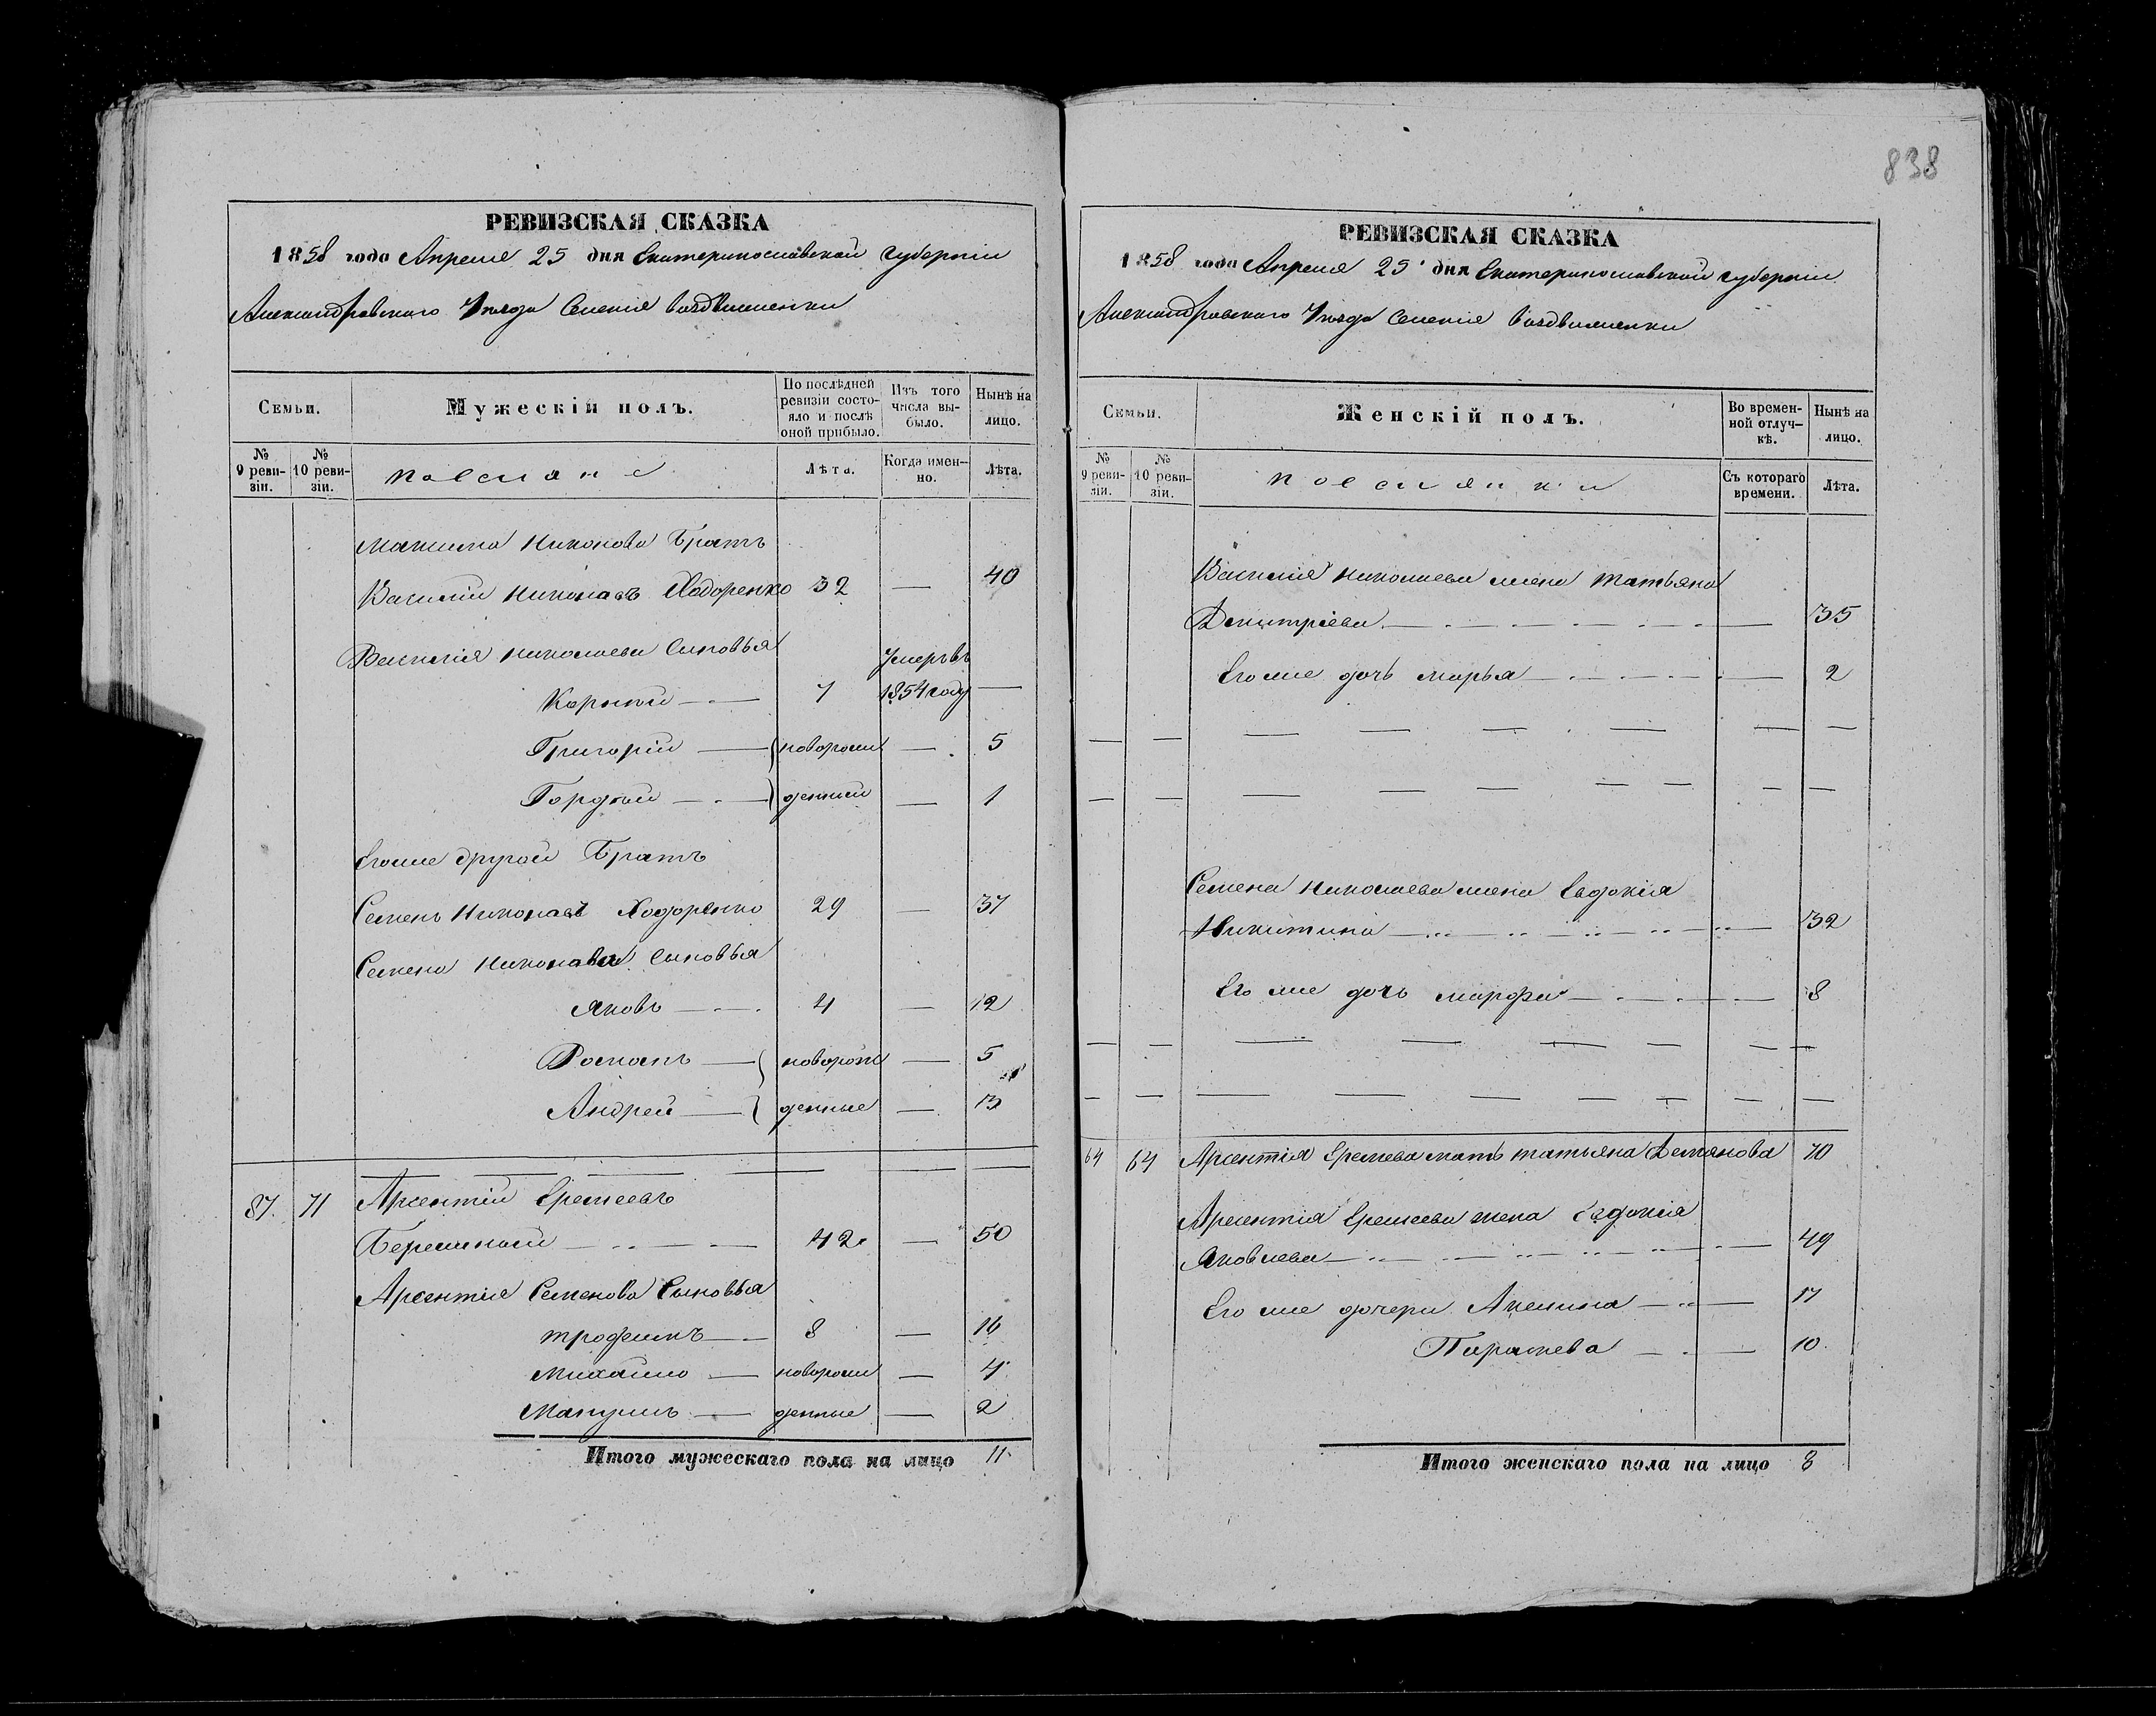 838
РЕВИЗСКАЯ СКАЗКА
1858 года Апреля 25 дня Екатеринославской губернии
Александровского Уезда Селения Воздвиженки
Семьи.
Мужескій полъ.
По послѣдней ревизіи состояло и послѣ оной прибыло.
Изъ того числа выбыло.
Нынѣ на лицо.
№ 9 ревизіи.
№ 10 ревизіи.
поселяне
Лѣта.
Когда именно.
Лѣта.
Максима Никонова Братъ
Василій Николаевъ Ходоренко 32 — 40
Василія Николаева Сыновья Умеръ въ
Корней — 7 1854 году —
Григорій — новорож — 5
Гордѣй — денный — 1
Егоже другой Братъ
Семенъ Николаевъ Ходоренко 29 — 37
Семена Николаева Сыновья
Яковъ — 4 — 12
Романъ — новорож — 5
Андрей — денные — 3
87. 71 Арсентій Еремеевъ
42 — 50
Арсентія Семенова Сыновья
трофимъ — 8 — 16
Михайло — новорож — 4
денные — 2
Итого мужескаго пола на лицо 11
РЕВИЗСКАЯ СКАЗКА
1858 года Апреля 25 дня Екатеринославской губернии
Александровского Уезда Селения Воздвиженки
Семьи.
Женскій полъ.
Во временной отлучкѣ.
Нынѣ на лицо.
№ 9 ревизіи.
№ 10 ревизіи.
поселянки
Съ котораго времени.
Лѣта.
Василія Николаева жена Татьяна
Дмитріева — 35
Егоже дочь марья — 2
Семена Николаева жена Евдокія
Никитина — 32
Его же дочь марфа — 8
64 64 Арсентія Еремева мать татьяна Демянова 70
Арсентія Еремеева жена Евдокія
Яковлева — 49
Его же дочери Акилина — 17
Параскева — 10
Итого женскаго пола на лицо 8